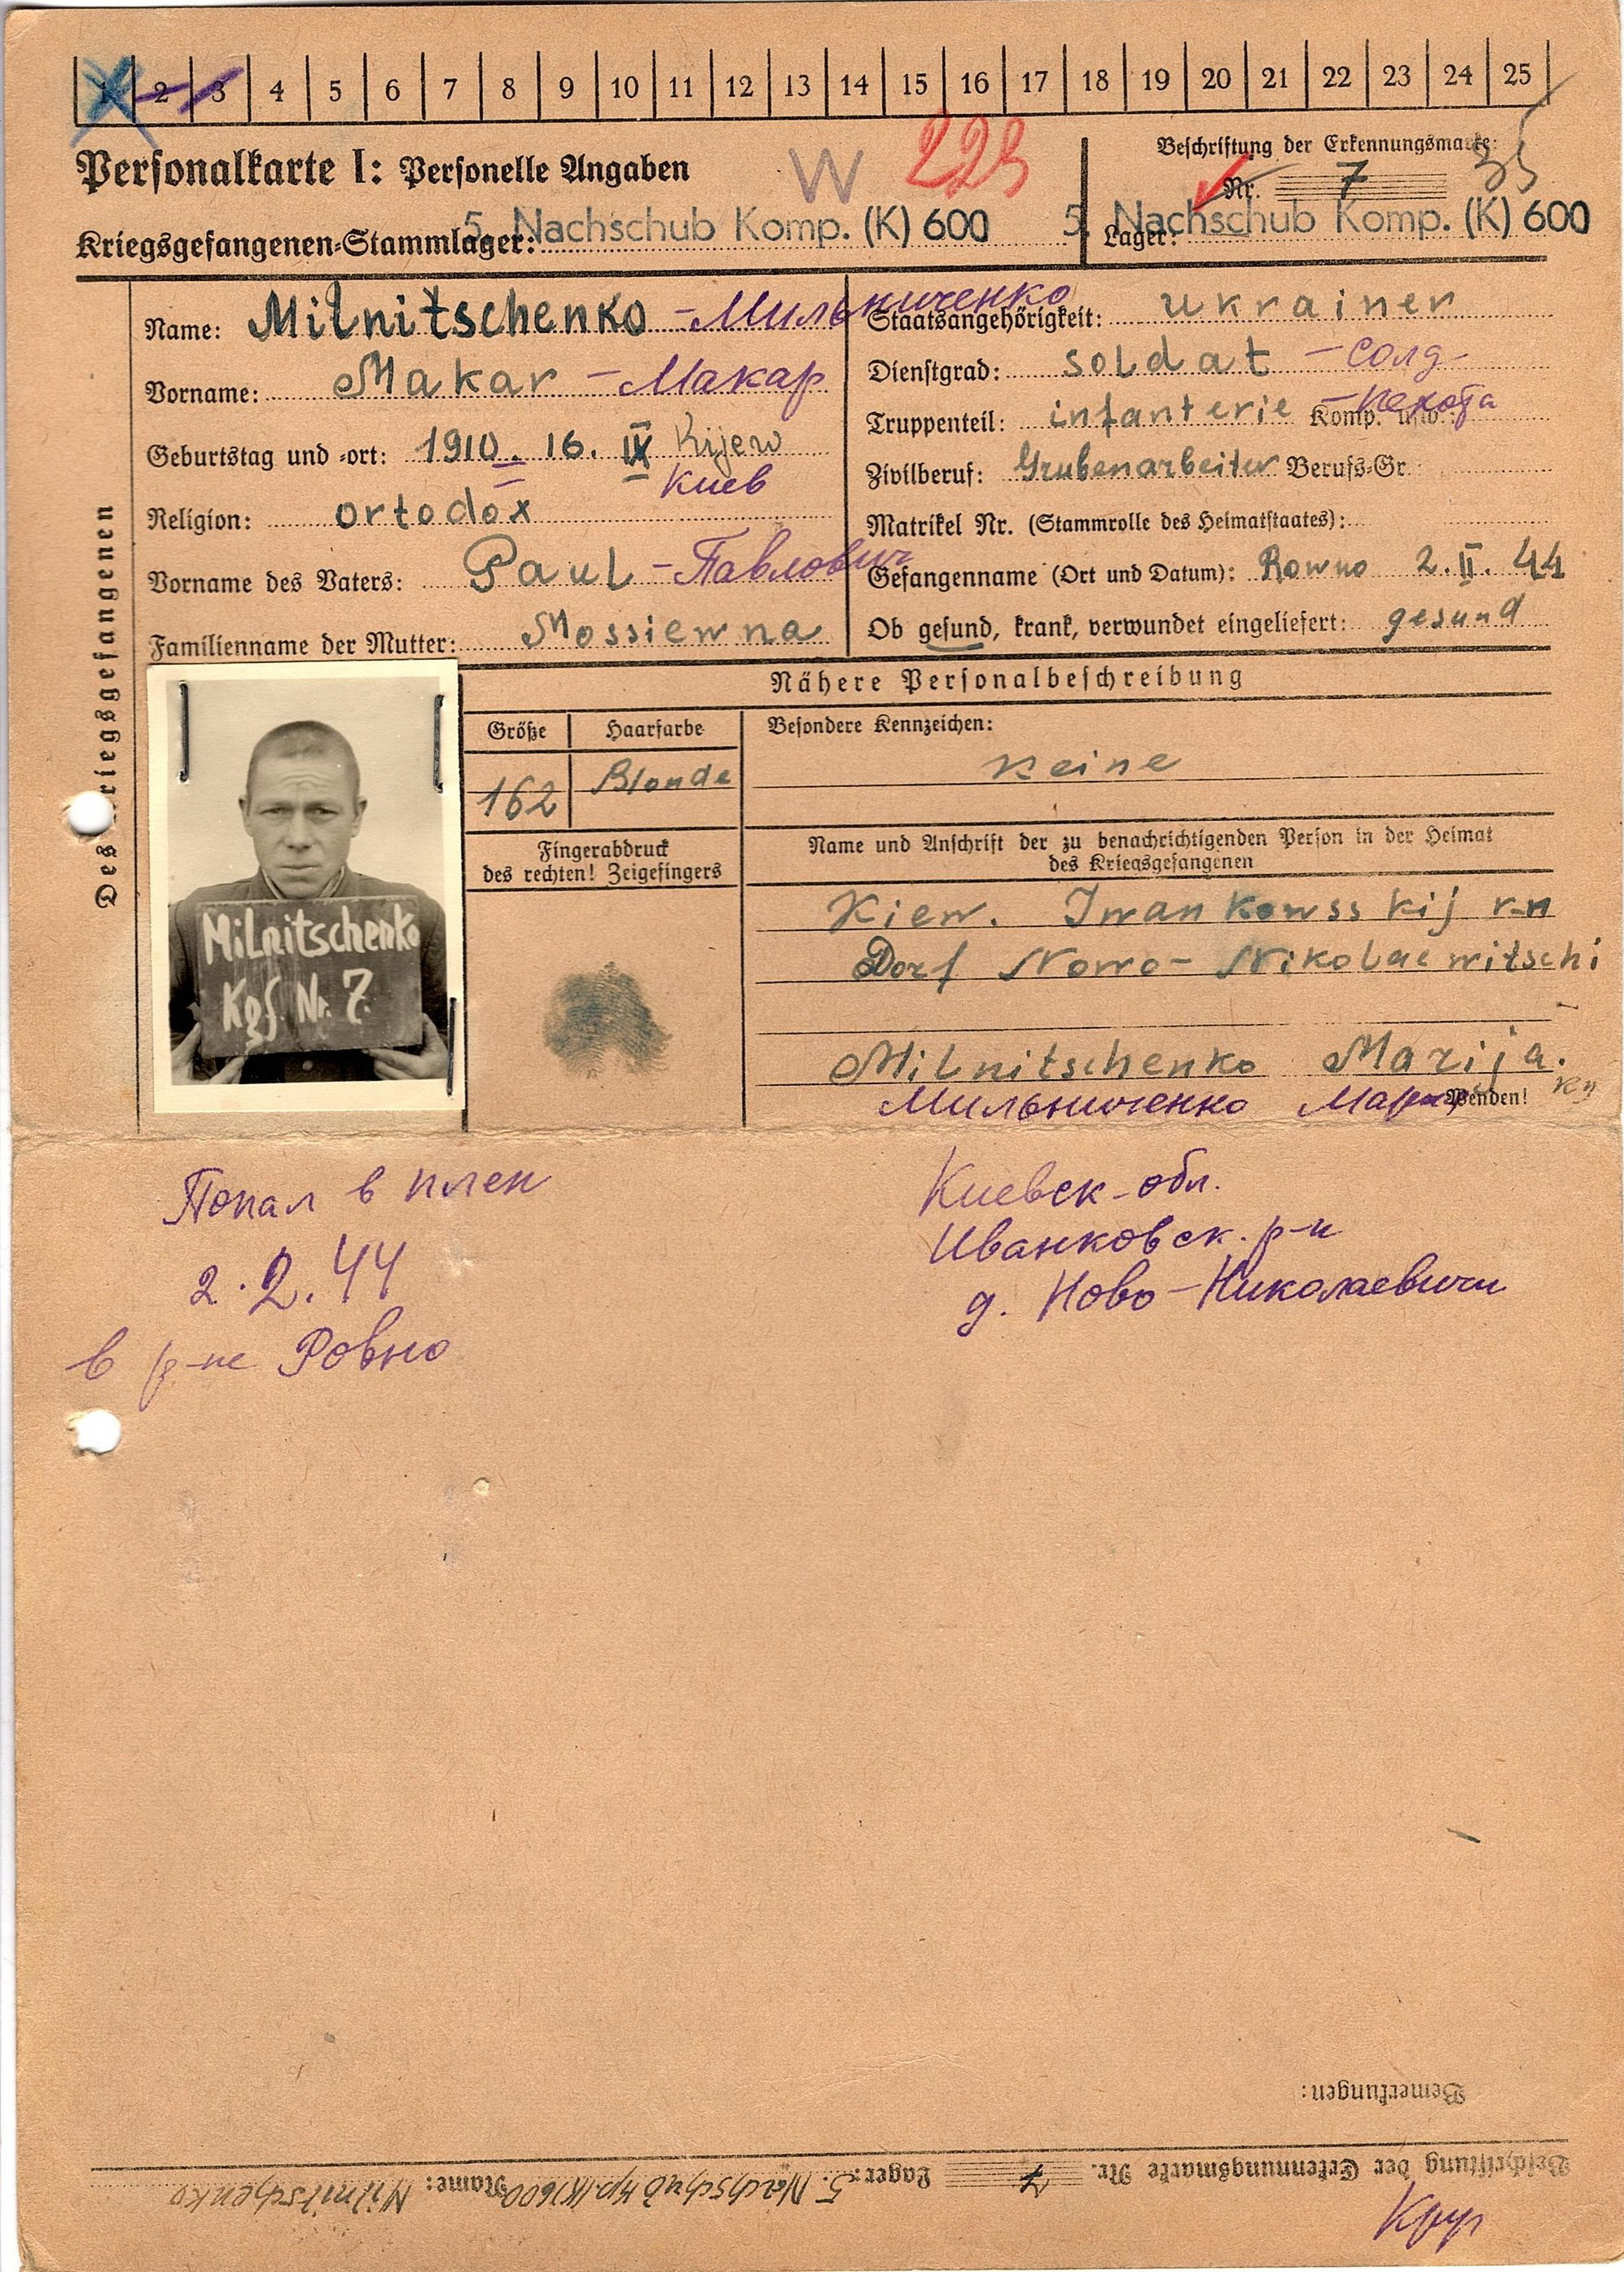 1 2 3 4 5 6 7 8 9 10 11 12 13 14 15 16 17 18 19 20 21 22 23 24 25
Personalkarte I: Personelle Angaben
W 223
Beschriftung der Erkennungsmarke:
Nr. 7
35
Kriegsgefangenen-Stammlager: 5. Nachschub Komp. (K) 600
Lager: 5. Nachschub Komp. (K) 600
Des Kriegsgefangenen
Name: Milnitschenko - Мильниченко
Vorname: Makar - Макар
Geburtstag und -ort: 1910. 16. IX Kijew
Киев
Religion: ortodox
Vorname des Vaters: Paul - Павлович
Familienname der Mutter: Mossiewna
Staatsangehörigkeit: ukrainer
Dienstgrad: soldat - солд-
Truppenteil: infanterie Komp. usw.: - пехота
Zivilberuf: Grubenarbeiter Berufs-Gr.:
Matrikel Nr. (Stammrolle des Heimatstaates):
Gefangenname (Ort und Datum): Rowno 2. II. 44
Ob gesund, krank, verwundet eingeliefert: gesund
Nähere Personalbeschreibung
Größe Haarfarbe Besondere Kennzeichen:
162 Blonde keine
Milnitschenko
Kgf. Nr. 7.
Fingerabdruck
des rechten! Zeigefingers
Name und Anschrift der zu benachrichtigenden Person in der Heimat
des Kriegsgefangenen
Kiew. Iwankowsskij r-n
Dorf Nowo- Nikolaewitschi
Milnitschenko Marija.
Мильниченко Мария
Wenden!
Попал в плен
2.2.44
в р-не Ровно
Киевск-обл.
Иванковск. р-н
д. Ново-Николаевичи
Bemerkungen:
Beschriftung der Erkennungsmarke Nr. 7 Lager: 5. Nachschub Kp. (K) 600 Name: Milnitschenko